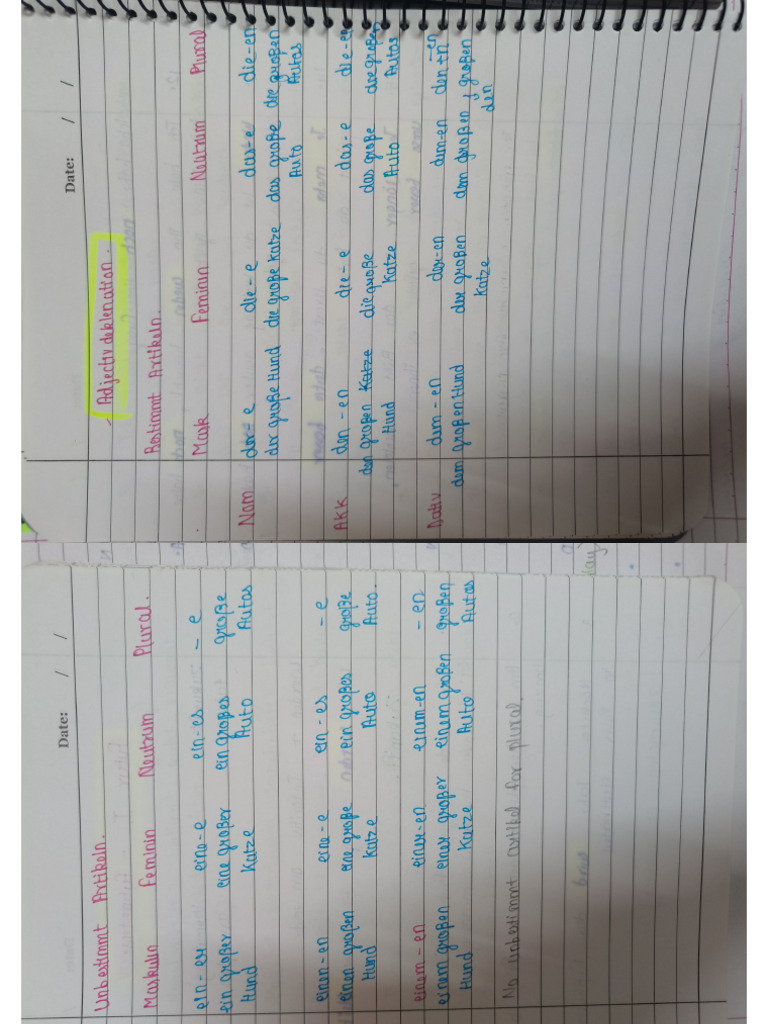 Date: / /
Adjectiv deklenation.
Bestimmt Artikeln.
Mask Feminin Neutrum Plural
Nom der - e die - e das - e die - en
der große Hund die große Katze das große die großen
Auto Autos
Akk den - en die - e das - e die - en
den großen Katze die große das große die großen
Hund Katze Auto Autos
Dativ dem - en der - en dem - en den +n - en
dem großen Hund der großen dem großen, großen
Katze den
Date: / /
Unbestimmt Artikeln.
Maskulin Feminin Neutrum Plural.
ein - er eine - e ein - es - e
ein großer eine großer ein großes große
Hund Katze Auto Autos
einen - en eine - e ein - es - e
einen großen eine große ein großes große
Hund Katze Auto Auto.
einem - en einer - en einem - en - en
einem großen einer großer einem großen großen
Hund Katze Auto Autos
No unbestimmt artikel for plural.